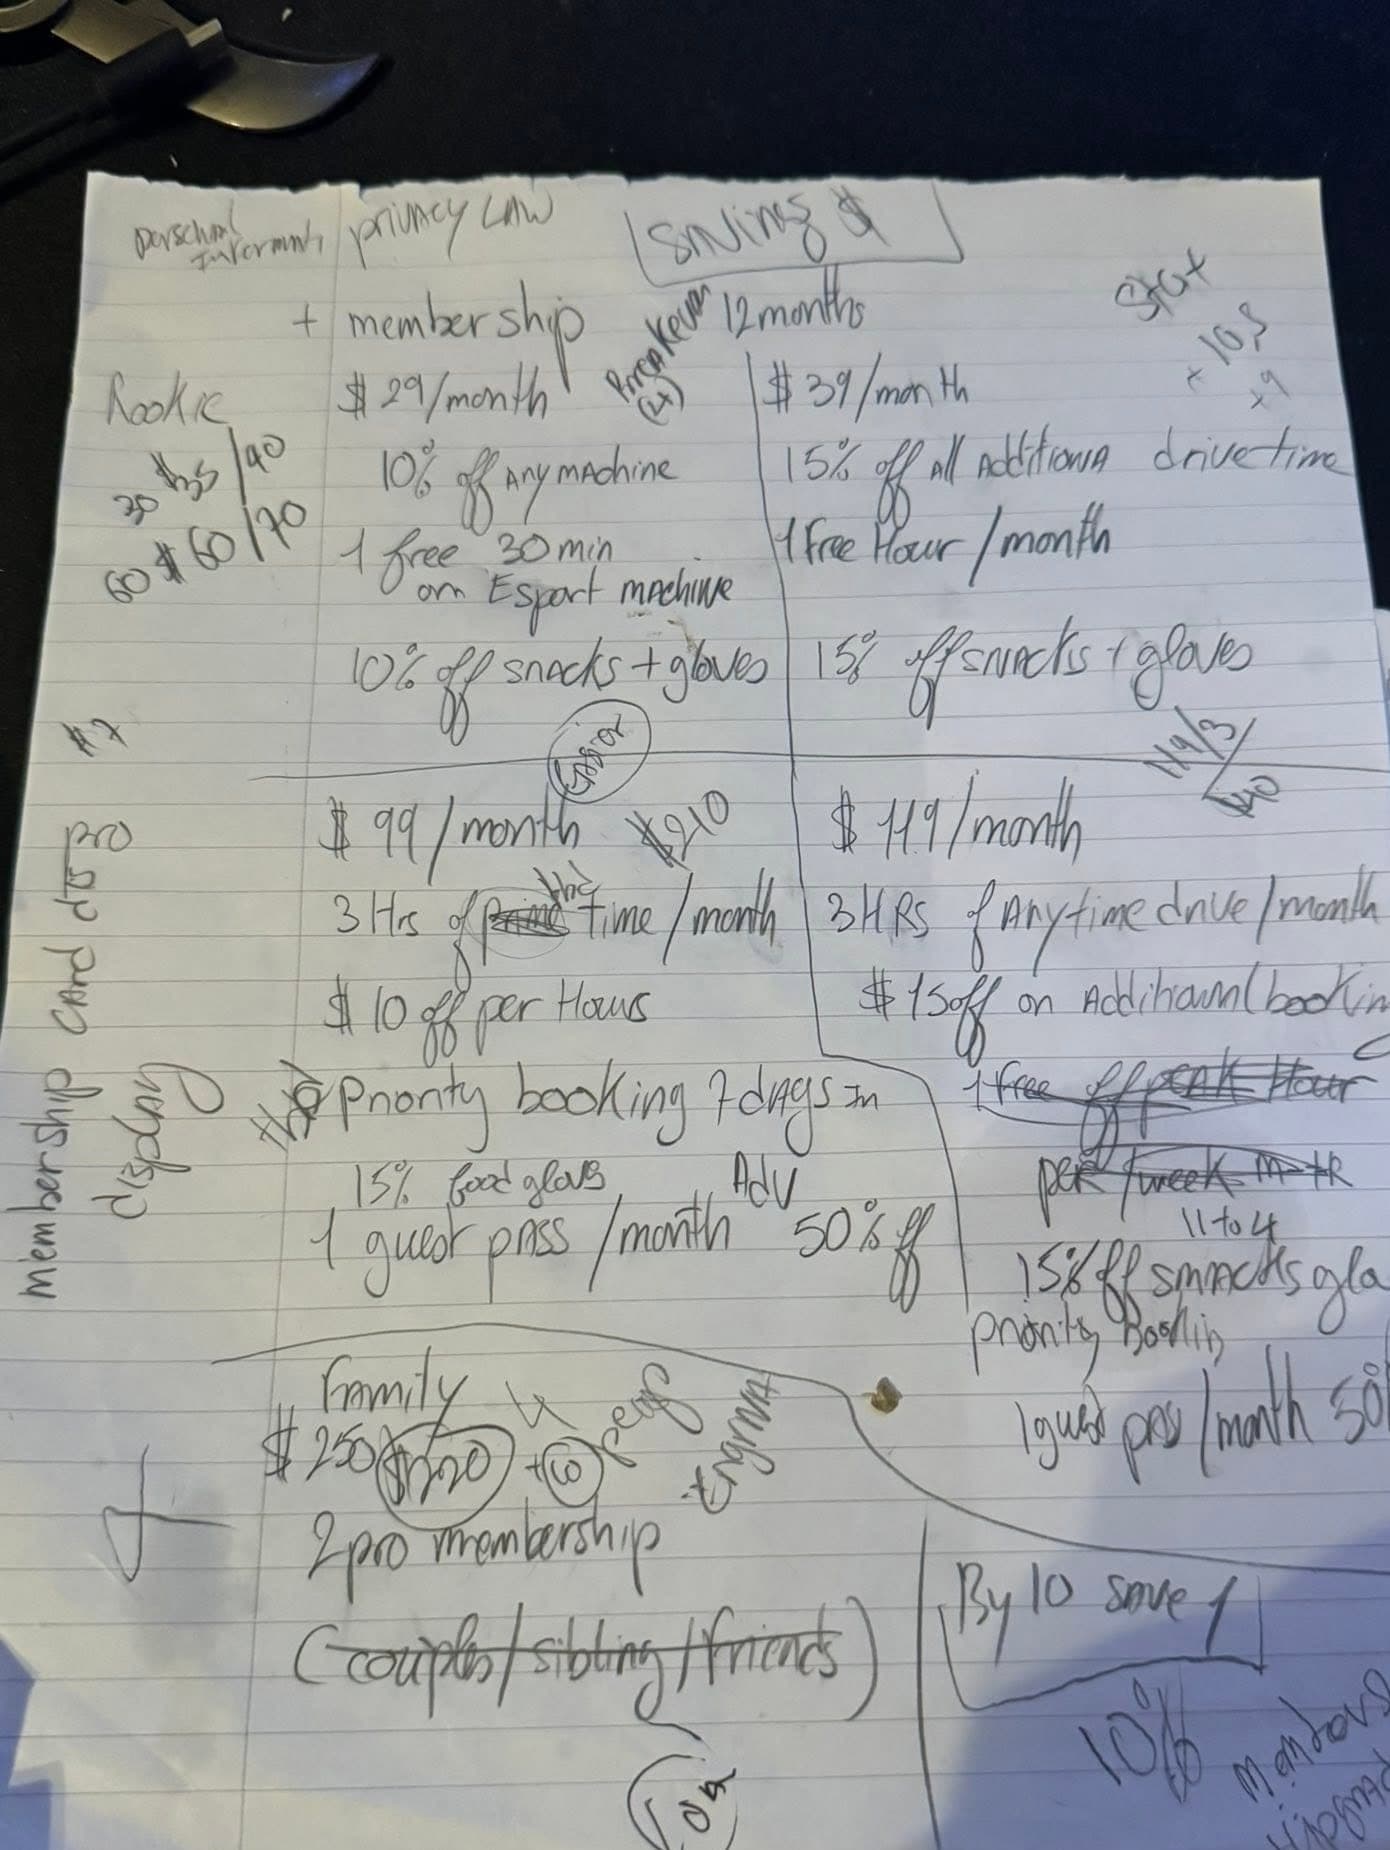 privacy LAW
Savings $
+ membership
12 months
Stat
+ 10,3
+9
Rookie
$ 29/month
(4)
$ 39/month
30 $35/40
10% off Any mAchine
15% off All AdditionA drive time
60 $60/70
1 free 30 min
on Esport mAchine
1 Free Hour/month
10% off snacks + gloves
15% off snacks + gloves
$7
119/3
$40
$ 99/month
$210
$ 119/month
3 Hrs of time/month
3 HRS of Anytime drive/month
$ 10 off per Hours
$ 15 off on
membership CArd to pro
display
Priority booking 7 dAys In
Adv
1 free off peak Hour
per/week M-tR
11 to 4
15% food glovs
1 guest pAss/month 50% off
15% off snAcks gla
priority Bookin
1 guest pAss/month 50%
FAmily
$ 250 $220 + 4
2 pro membership
(couples/sibling/friends)
By 10 save 1
10%